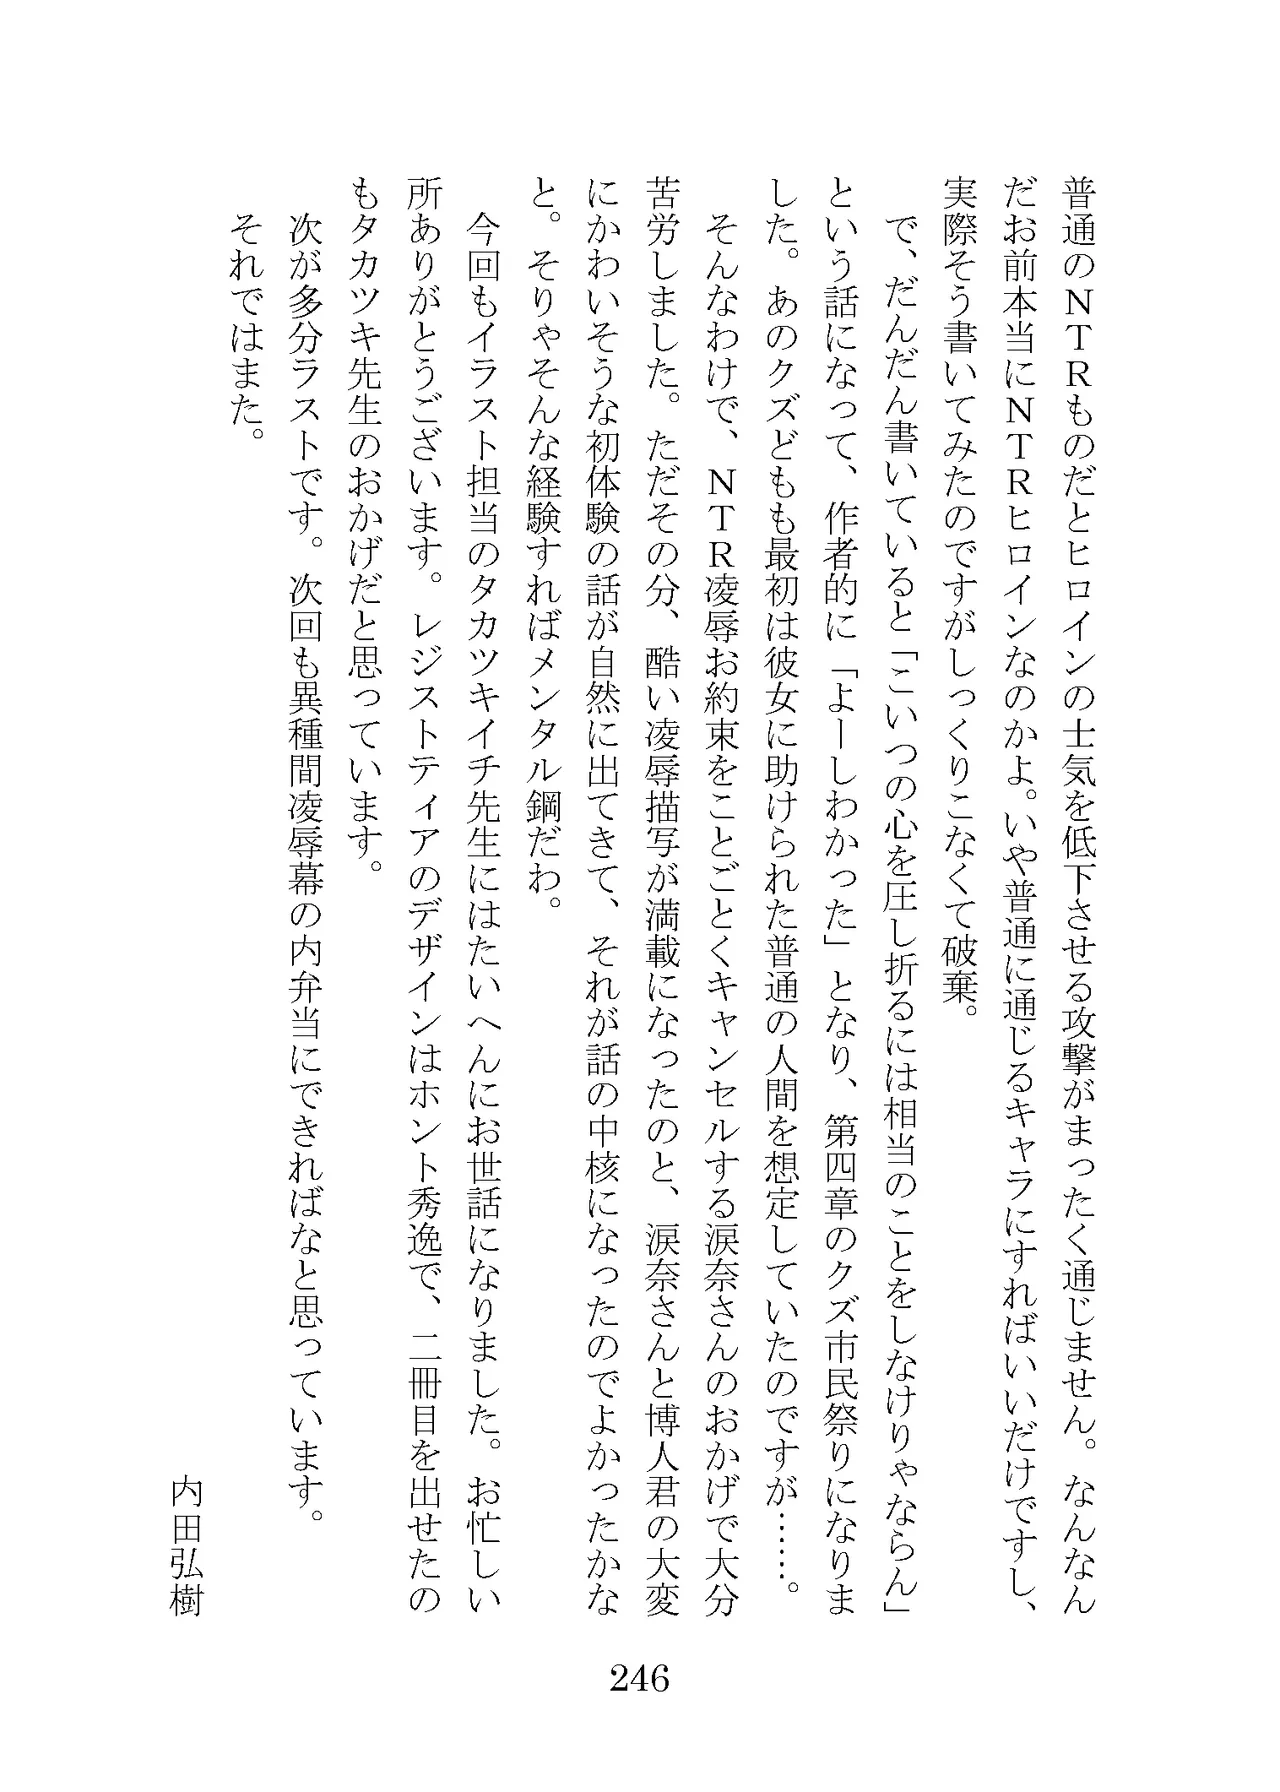 普通のＮＴＲものだとヒロインの士気を低下させる攻撃がまったく通じません。なんなん
だお前本当にＮＴＲヒロインなのかよ。いや普通に通じるキャラにすればいいだけですし、
実際そう書いてみたのですがしっくりこなくて破棄。
で、だんだん書いていると「こいつの心を圧し折るには相当のことをしなけりゃならん」
という話になって、作者的に「よーしわかった」となり、第四章のクズ市民祭りになりま
した。あのクズどもも最初は彼女に助けられた普通の人間を想定していたのですが……。
そんなわけで、ＮＴＲ凌辱お約束をことごとくキャンセルする涙奈さんのおかげで大分
苦労しました。ただその分、酷い凌辱描写が満載になったのと、涙奈さんと博人君の大変
にかわいそうな初体験の話が自然に出てきて、それが話の中核になったのでよかったかな
と。そりゃそんな経験すればメンタル鋼だわ。
今回もイラスト担当のタカツキイチ先生にはたいへんにお世話になりました。お忙しい
所ありがとうございます。レジストティアのデザインはホント秀逸で、二冊目を出せたの
もタカツキ先生のおかげだと思っています。
次が多分ラストです。次回も異種間凌辱幕の内弁当にできればなと思っています。
それではまた。
内田弘樹
246